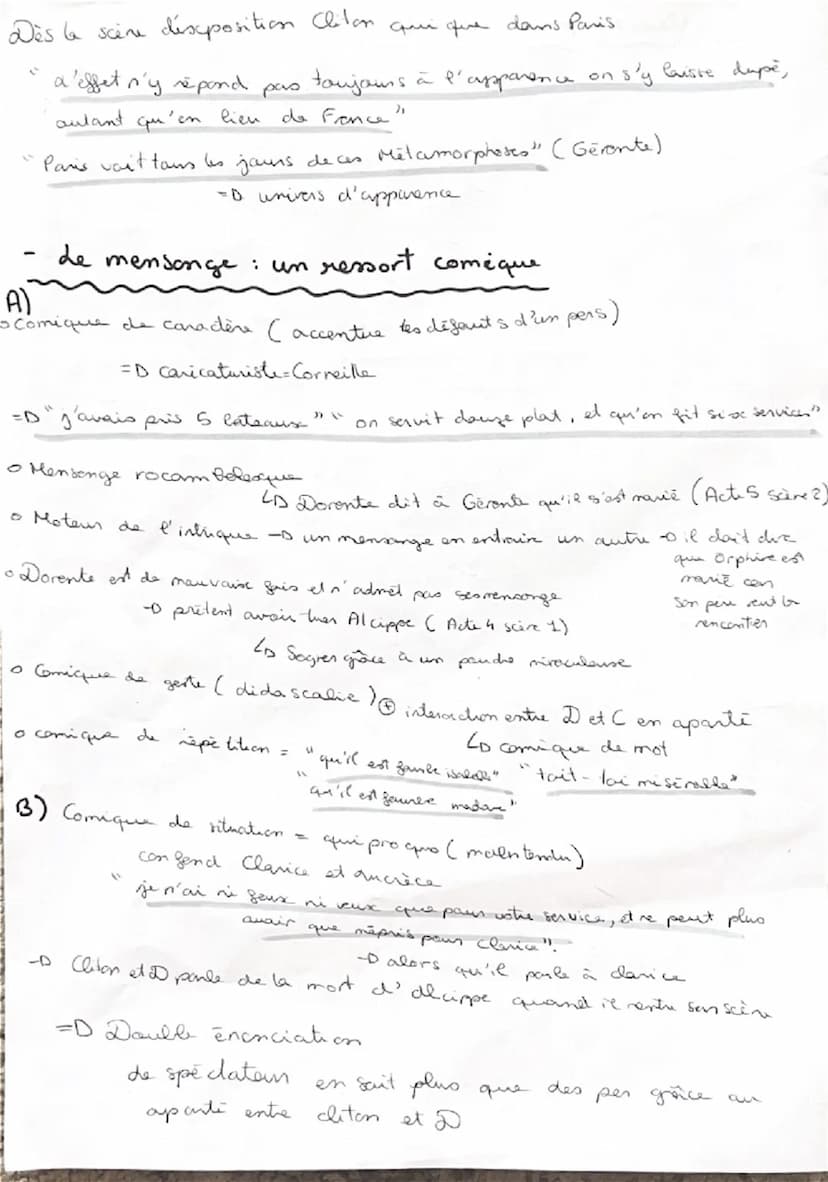 Dès la scène d'exposition Cliton qui que dans Paris
"L'effet n'y répond pas toujours à l'apparence on s'y laisse dupé,
autant qu'en lieu de France"
"Paris voit tous les jours de ces Métamorphoses" (Géronte)
=D univers d'apparence
- Le mensonge : un ressort comique
A)
o Comique de caractère ( accentue les défauts d'un pers)
=D caricaturiste=Corneille
=D "j'avais pris 5 bateaux" " on servit douze plat, et qu'on fit six services"
o Mensonge rocambolesque
↳D Dorente dit à Géronte qu'il s'est marié (Acte 5 scène 2)
o Moteur de l'intrigue -D un mensonge en entraine un autre -D il doit dire
que Orphise est
marié con
son pere veut la
rencontrer
o Dorente est de mauvaise fois et n'admet pas ses mensonge
-D prétent avoir tuer Alcippe ( Acte 4 scène 1)
↳D grâce à un poudre miraculeuse
o Comique de geste ( didascalie ) ⊕ interaction entre D et C en aparté
↳D comique de mot
"tait-toi misérable"
o comique de répétition = "qu'il est
"qu'il est
B) Comique de situation = qui pro quo ( malentendu)
confond Clarice et Lucrèce
" je n'ai ni feux ni veux que pour votre service, et ne peut plus
avoir que mépris pour Clarice".
-D alors qu'il parle à clarice
-D Cliton et D parle de la mort d'Alcippe quand il rentre sur scène
=D Double énonciation
Le spéctateur en sait plus que des per grâce au
aparté entre cliton et D